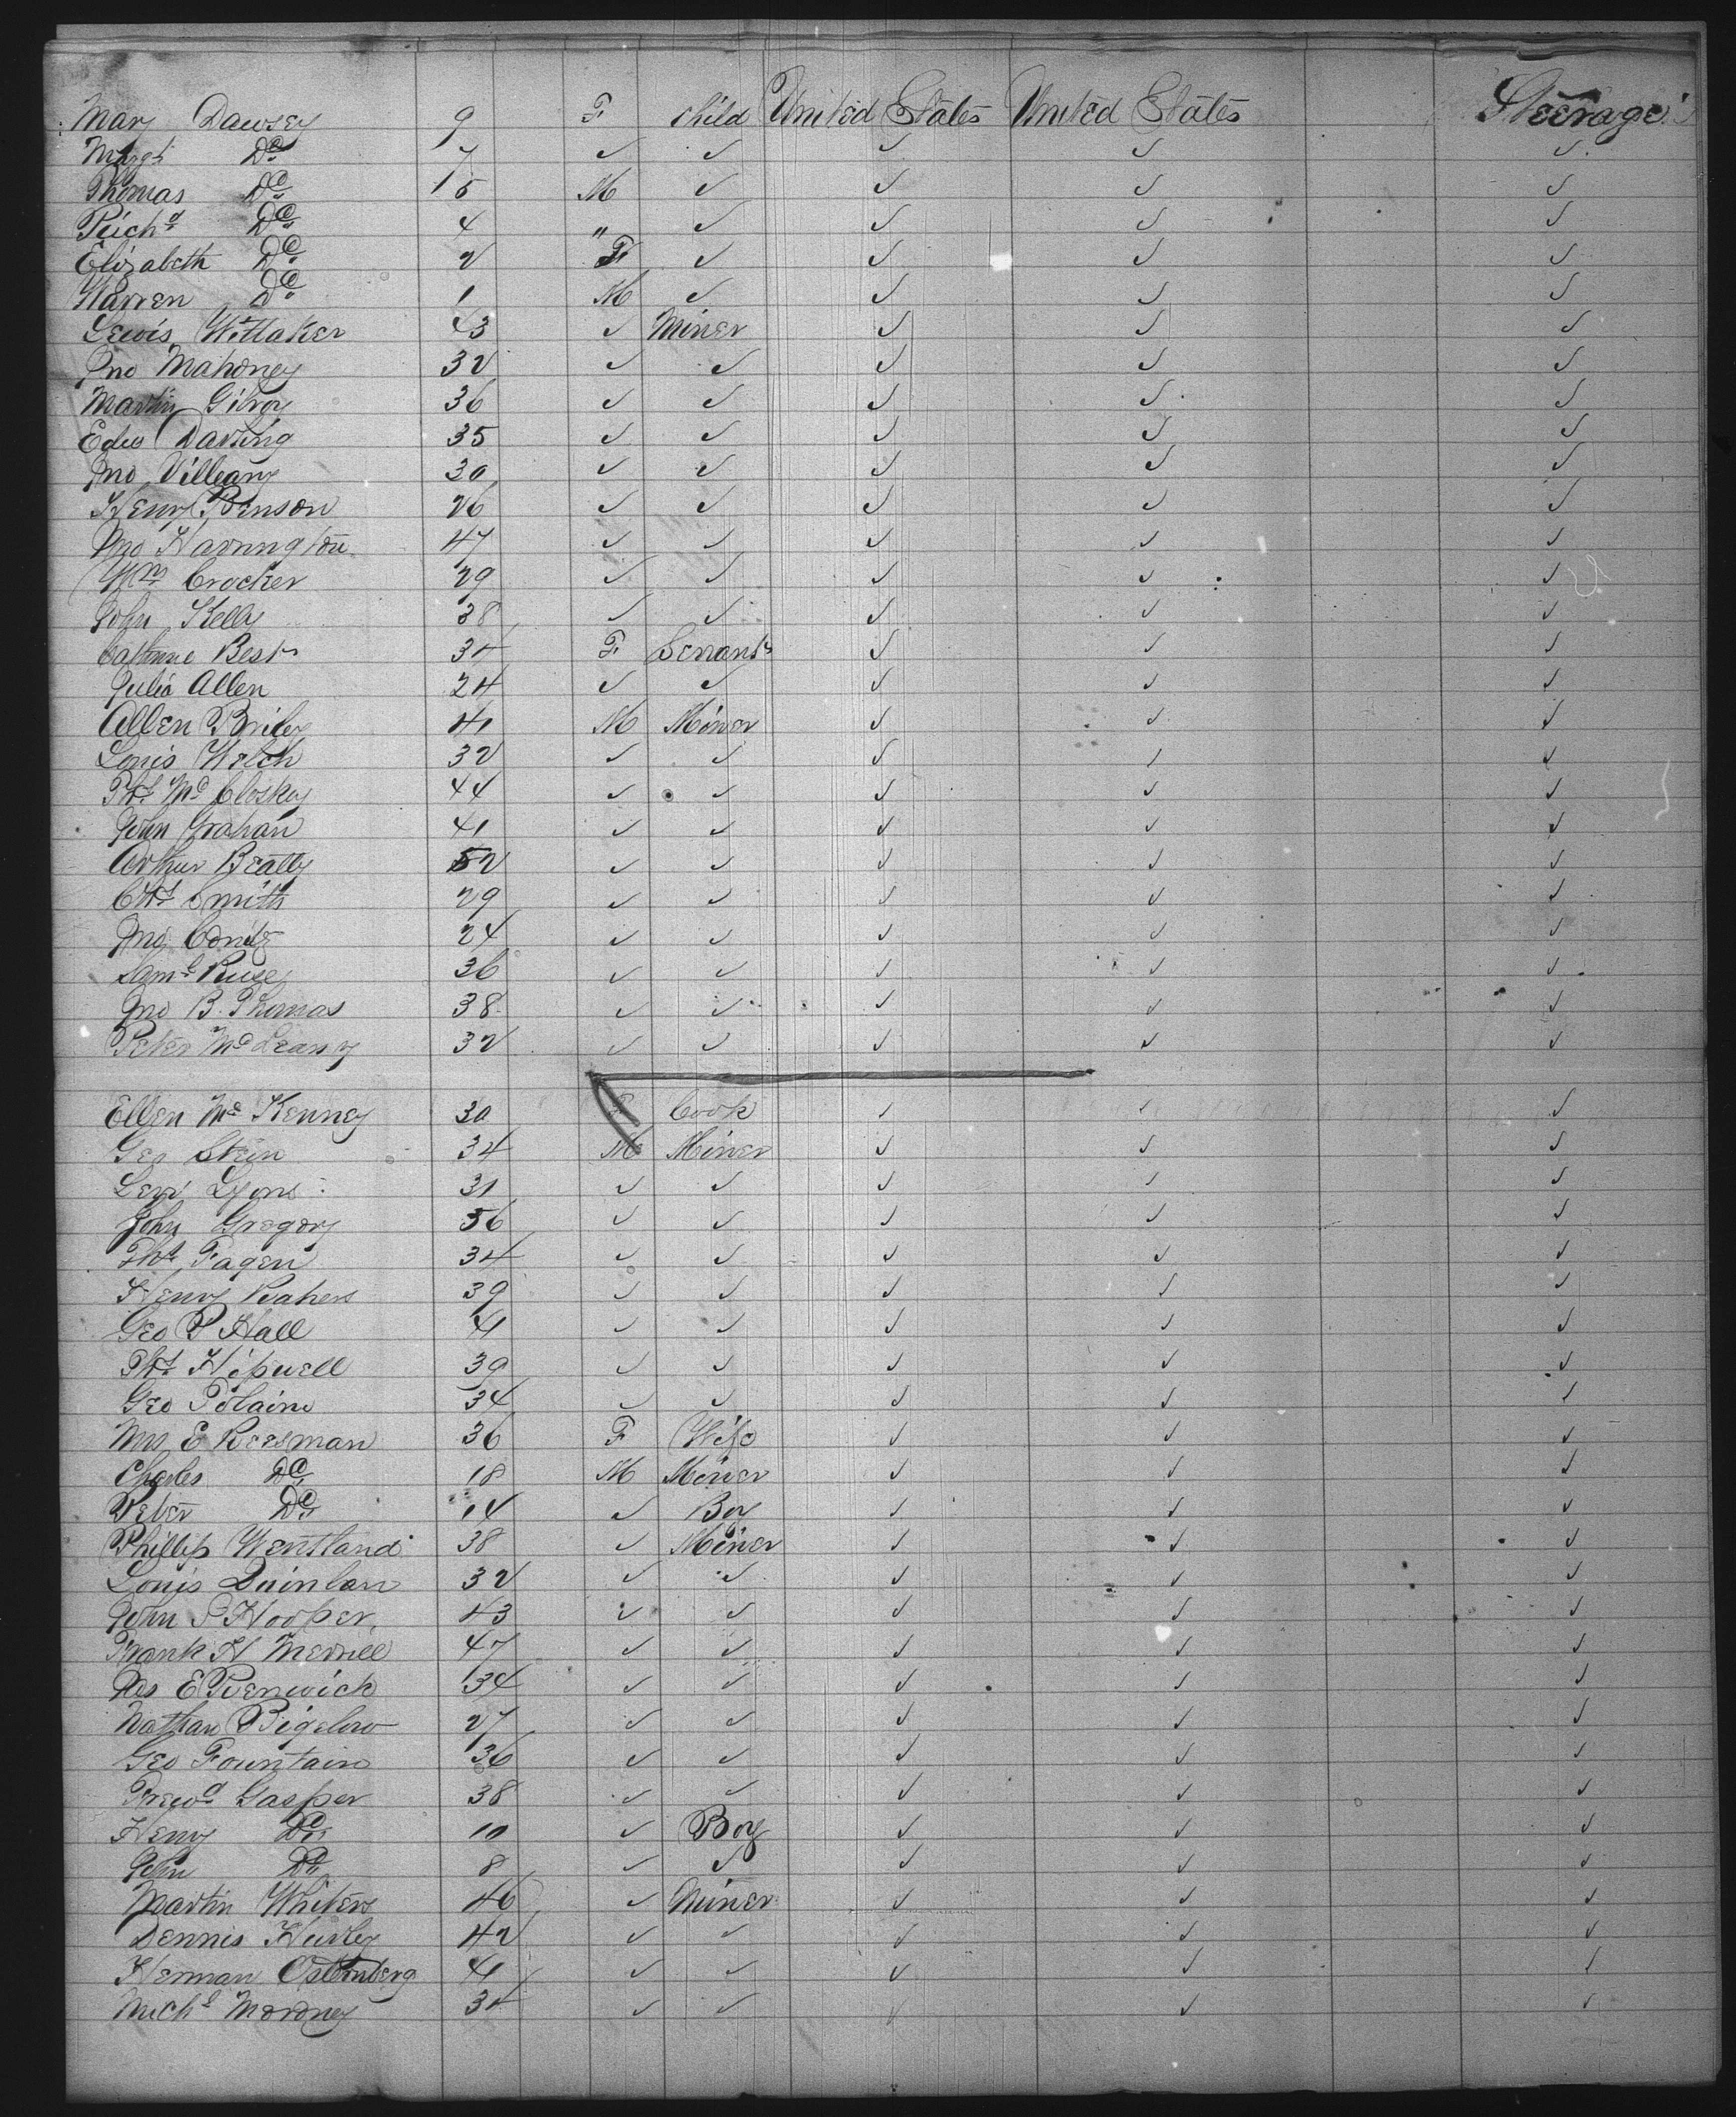 Mary Dawsey 9 F child United States United States Steerage
Margt Do 7 ✓ ✓ ✓ ✓ ✓
Thomas Do 5 M ✓ ✓ ✓ ✓
Richd Do 4 " ✓ ✓ ✓ ✓
Elizabeth Do 2 F ✓ ✓ ✓ ✓
Warren Do 1 M ✓ ✓ ✓ ✓
Lewis Wittaker 43 ✓ Miner ✓ ✓ ✓
Jno Mahoney 32 ✓ ✓ ✓ ✓ ✓
Martin Gilroy 36 ✓ ✓ ✓ ✓ ✓
Edw Darling 35 ✓ ✓ ✓ ✓ ✓
Jno 30 ✓ ✓ ✓ ✓ ✓
Henry Benson 26 ✓ ✓ ✓ ✓ ✓
Jno Harrington 47 ✓ ✓ ✓ ✓ ✓
Wm Crocker 29 ✓ ✓ ✓ ✓ ✓
John Kelly 38 ✓ ✓ ✓ ✓ ✓
Best 34 F Servant ✓ ✓ ✓
Julia Allen 24 ✓ ✓ ✓ ✓ ✓
Allen 41 M Miner ✓ ✓ ✓
Louis Welch 32 ✓ ✓ ✓ ✓ ✓
Pk McCloskey 44 ✓ ✓ ✓ ✓ ✓
John Grahan 41 ✓ ✓ ✓ ✓ ✓
Arthur Beatty 52 ✓ ✓ ✓ ✓ ✓
Smith 29 ✓ ✓ ✓ ✓ ✓
Jno 24 ✓ ✓ ✓ ✓ ✓
Saml 36 ✓ ✓ ✓ ✓ ✓
Jno B. Thomas 38 ✓ ✓ ✓ ✓ ✓
Peter 32 ✓ ✓ ✓ ✓ ✓
Ellen McKenney 30 F Cook ✓ ✓ ✓
Geo Stein 34 M Miner ✓ ✓ ✓
Levi Lyons 31 ✓ ✓ ✓ ✓ ✓
John Gregory 56 ✓ ✓ ✓ ✓ ✓
Fagen 34 ✓ ✓ ✓ ✓ ✓
Henry 39 ✓ ✓ ✓ ✓ ✓
Geo P Hall 41 ✓ ✓ ✓ ✓ ✓
Hipwell 39 ✓ ✓ ✓ ✓ ✓
Geo 34 ✓ ✓ ✓ ✓ ✓
Mrs E Reesman 36 F Wife ✓ ✓ ✓
Charles Do 18 M Miner ✓ ✓ ✓
Peter Do 14 ✓ Boy ✓ ✓ ✓
Phillip Wentland 38 ✓ Miner ✓ ✓ ✓
Louis Quinlan 32 ✓ ✓ ✓ ✓ ✓
John S Hooper 43 ✓ ✓ ✓ ✓ ✓
Frank H Merrill 47 ✓ ✓ ✓ ✓ ✓
Jas E Renwick 34 ✓ ✓ ✓ ✓ ✓
Nathan Bigelow 27 ✓ ✓ ✓ ✓ ✓
Geo Fountain 36 ✓ ✓ ✓ ✓ ✓
Gasper 38 ✓ ✓ ✓ ✓ ✓
Henry Do 10 ✓ Boy ✓ ✓ ✓
John Do 8 ✓ ✓ ✓ ✓ ✓
Martin 46 ✓ Miner ✓ ✓ ✓
Dennis Hurley 42 ✓ ✓ ✓ ✓ ✓
Herman 41 ✓ ✓ ✓ ✓ ✓
Michl Moroney 34 ✓ ✓ ✓ ✓ ✓